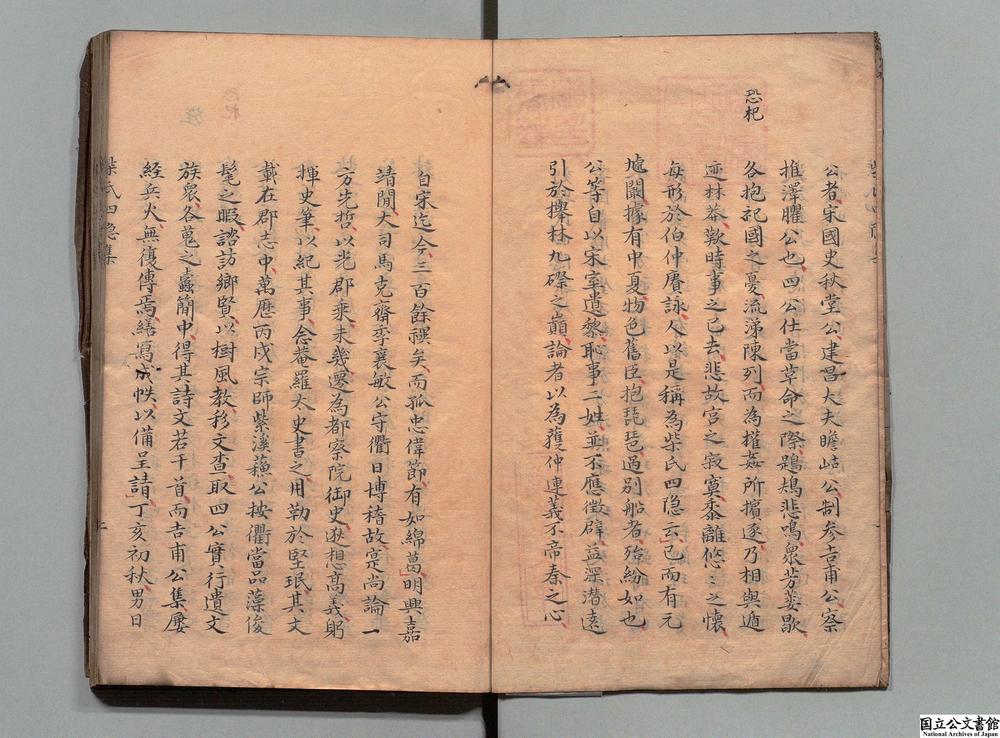 恐杞
公者宋國史秋堂公建昌大夫瞻岵公制參吉甫公察
推澤臞公也四公仕當革命之際鶗鴂悲鳴衆芳萎歇
各抱祀國之憂流涕陳列而為權姦所擯逐乃相與遁
迹林莽歎時事之已去悲故宮之寂寞黍離悠〻之懷
每形於伯仲賡詠人以是稱為柴氏四隐云已而有元
墟闞據有中夏物色舊臣抱琵琶過別船者殆紛如也
公等自以宋室遺黎恥事二姓並不應徵辟益深潜遠
引於櫸林九磜之巔論者以為獲仲連義不帝秦之心
自宋迄今三百餘禩矣而孤忠偉節有如綿葛明興嘉
靖間大司馬克齋李襄敏公守衢日博稽故寔尚論一
方先哲以光郡乘未幾遷為都察院御史亟想高義躬
揮史筆以紀其事念菴羅太史書之用勒於堅珉其文
載在郡志中萬歷丙戌宗師紫溪蘓公按衢當品藻俊
髦之暇諮訪鄉賢以樹風教移文查取四公實行遺文
族衆各蒐之蠹簡中得其詩文若干首而吉甫公集屢
經兵火無復傳焉繕寫成帙以備呈請丁亥初秋男日
柴氏四隐集
上
国立公文書館
National Archives of Japan